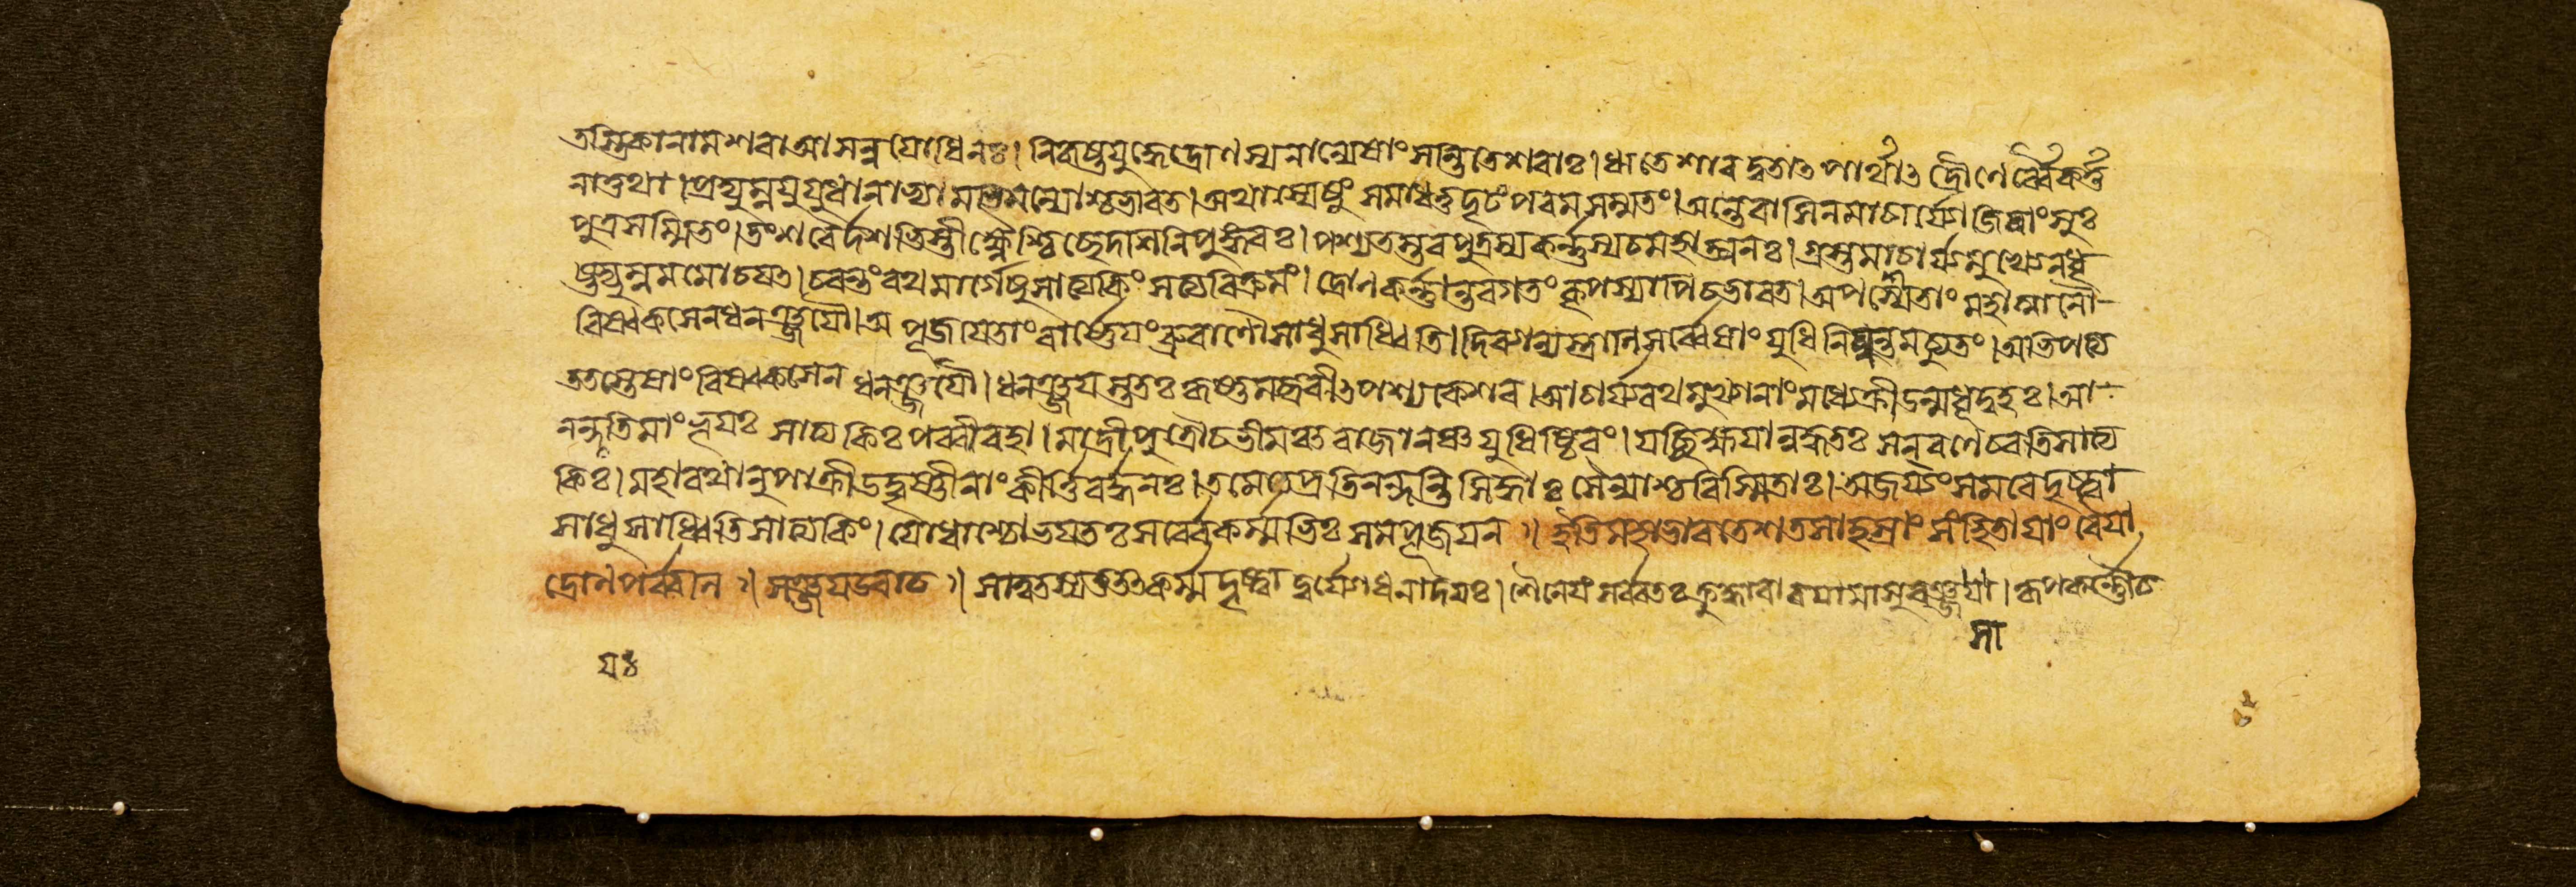 তস্তিকানামশৰাআসন্নযোধিনঃ।নিকৃষ্টযুদ্ধেদ্রোণস্যনান্যেষাংসন্তিতেশৰাঃ।ঋতেশাৰদ্বতাৎপার্থাৎদ্রৌণের্ব্বৈকর্ত্ত
নাত্তথা।প্রদ্যুম্নযুযুধানাভ্যামভিমন্যোশ্চভাৰত।অথাস্যেষুং সমাধত্তদৃঢংপৰমসম্মতং।অন্তেবাসিনমাচার্য্যোজিঘাংসুঃ
পুত্রসম্মিতং।তংশৰৈর্দশভিস্তীক্ষ্ণৈশ্চিচ্ছেদাশনিপুঙ্গবঃ।পশ্যতস্তবপুত্রস্যকর্ণ্ণস্যচমহাত্মনঃ।গ্রস্তমাচার্য্যমুখ্যেনধৃ
ষ্টদ্যুম্নমমোচযত।চৰন্তংৰথমার্গেষুসাত্যকিং সত্যবিক্রমং।দ্রোনকর্ণ্ণান্তৰগতংকৃপস্যাপিচভাৰত।অপশ্যেতাং মহাত্মানৌ
বিষ্বকসেনধনঞ্জযৌ।অ পূজযেতাংবার্ষ্ণেযংব্রুবাণৌসাধুসাধ্বিতি।দিব্যান্যস্ত্রানিসর্ব্বেষাং যুধিনিঘ্নন্তমচ্যুতং।অভিপত্য
ততস্তেষাংবিষ্বকসেন ধনঞ্জযৌ।ধনঞ্জযস্ততঃ কৃষ্ণমব্রবীৎপশ্যকেশব।আচার্য্যৰথমুখ্যানাংমধ্যেক্রীডন্মধূদ্বহঃ।আ
নন্দযতিমাংভূযঃ সাত্যকিঃ পৰবীৰহা।মাদ্রীপুত্রৌচভীমঞ্চৰাজানঞ্চ যুধিষ্ঠিৰং।যচ্ছিক্ষযানুদ্ধতঃ সনৰণেচৰতিসাত্য
কিঃ।মহাৰথানুপাক্রীডদ্বৃষ্ণীনাংকীর্ত্তিবর্দ্ধনঃ।তমেতেপ্রতিনন্দন্তিসিদ্ধাঃ সৈন্যাশ্চবিস্মিতাঃ।অজয্যংসমৰেদৃষ্ট্বা
সাধুসাধ্বিতিসাত্যকিং।যোধাশ্চোভযতঃ সর্ব্বেকর্ম্মভিঃ সমপূজযন ঃ।ইতিমহাভাৰতেশতসাহস্র্যাং সংহিতাযাংবৈযা
দ্রোনপর্ব্বান ঃ।সঞ্জযউবাচ ঃ।সাত্বতস্যতুতৎকর্ম্মদৃষ্ট্বা দুর্যোধনাদযঃ।শৈনেযংসর্ব্বতঃ ক্রুদ্ধাবাৰযামাসুৰঞ্জযা।কৃপকর্ণ্ণৌচ
সা
যঃ